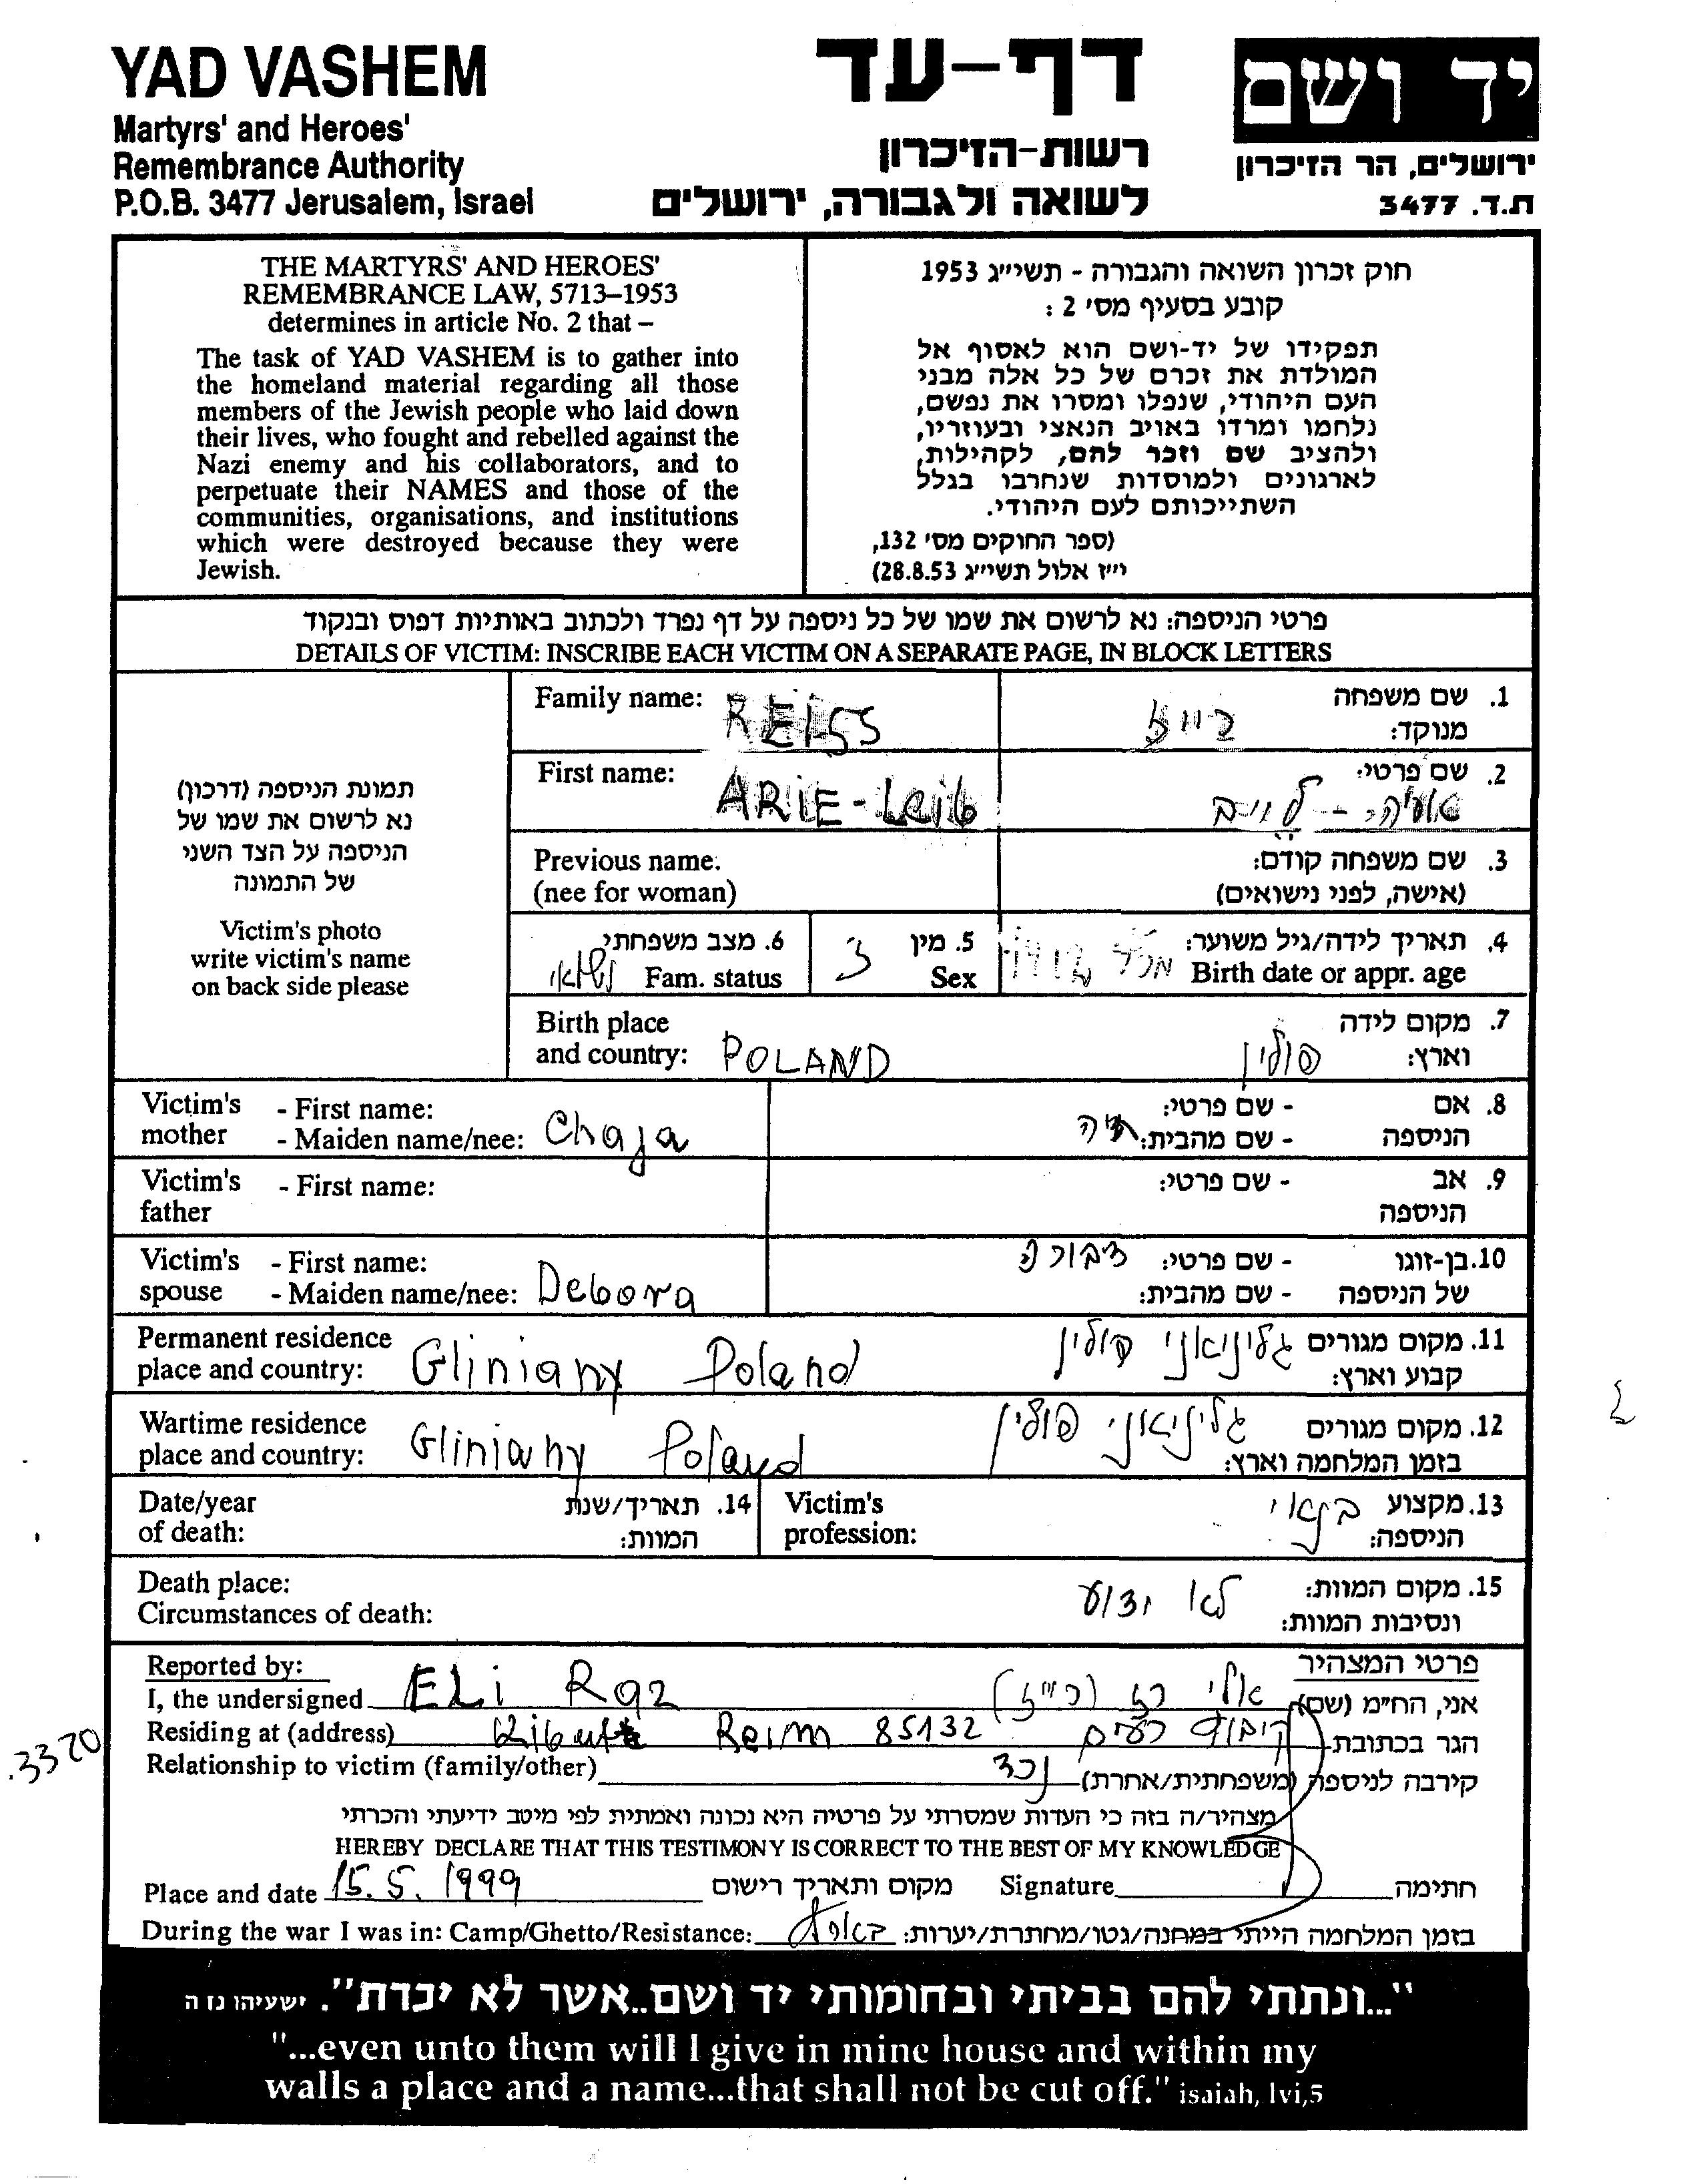 YAD VASHEM
Martyrs' and Heroes'
Remembrance Authority
P.O.B. 3477 Jerusalem, Israel
דף-עד
רשות-הזיכרון
לשואה ולגבורה, ירושלים
יד ושם
ירושלים, הר הזיכרון
ת.ד. 3477
THE MARTYRS' AND HEROES'
REMEMBRANCE LAW, 5713–1953
determines in article No. 2 that –
The task of YAD VASHEM is to gather into
the homeland material regarding all those
members of the Jewish people who laid down
their lives, who fought and rebelled against the
Nazi enemy and his collaborators, and to
perpetuate their NAMES and those of the
communities, organisations, and institutions
which were destroyed because they were
Jewish.
חוק זכרון השואה והגבורה - תשי״ג 1953
קובע בסעיף מס׳ 2 :
תפקידו של יד-ושם הוא לאסוף אל
המולדת את זכרם של כל אלה מבני
העם היהודי, שנפלו ומסרו את נפשם,
נלחמו ומרדו באויב הנאצי ובעוזריו,
ולהציב שם וזכר להם, לקהילות,
לארגונים ולמוסדות שנחרבו בגלל
השתייכותם לעם היהודי.
(ספר החוקים מס׳ 132,
י״ז אלול תשי״ג 28.8.53)
פרטי הניספה: נא לרשום את שמו של כל ניספה על דף נפרד ולכתוב באותיות דפוס ובנקוד
DETAILS OF VICTIM: INSCRIBE EACH VICTIM ON A SEPARATE PAGE, IN BLOCK LETTERS
תמונת הניספה (דרכון)
נא לרשום את שמו של
הניספה על הצד השני
של התמונה
Victim's photo
write victim's name
on back side please
Family name: REISS
1. שם משפחה
מנוקד: רייז
First name: ARIE-Leib
2. שם פרטי: אריה - לייב
Previous name.
(nee for woman)
3. שם משפחה קודם:
(אישה, לפני נישואים)
4. תאריך לידה/גיל משוער:
Birth date or appr. age
5. מין ז
Sex
6. מצב משפחתי
Fam. status נשוי
Birth place
and country: POLAND
7. מקום לידה
וארץ: פולין
Victim's mother - First name:
- Maiden name/nee: Chaja
8. אם - שם פרטי:
הניספה - שם מהבית: חיה
Victim's father - First name:
9. אב - שם פרטי:
הניספה
Victim's spouse - First name:
- Maiden name/nee: Debora
10. בן-זוגו - שם פרטי: דבורה
של הניספה - שם מהבית:
Permanent residence
place and country: Gliniany Poland
11. מקום מגורים גלינאני פולין
קבוע וארץ:
Wartime residence
place and country: Gliniany Poland
12. מקום מגורים גלינאני פולין
בזמן המלחמה וארץ:
Date/year
of death:
14. תאריך/שנת
המוות:
Victim's
profession:
13. מקצוע
הניספה:
Death place:
Circumstances of death:
15. מקום המוות: לא ידוע
ונסיבות המוות:
Reported by:
פרטי המצהיר
I, the undersigned ELi Raz
אני, החי״מ (שם) אלי רז (רייז)
Residing at (address) Kibutz Reim 85132
הגר בכתובת קיבוץ רעים
Relationship to victim (family/other)
קירבה לניספה (משפחתית/אחרת) נכד
.3370
מצהיר/ה בזה כי העדות שמסרתי על פרטיה היא נכונה ואמתית לפי מיטב ידיעתי והכרתי
HEREBY DECLARE THAT THIS TESTIMONY IS CORRECT TO THE BEST OF MY KNOWLEDGE
Place and date 15.5.1999 מקום ותאריך רישום
Signature חתימה
During the war I was in: Camp/Ghetto/Resistance:
בזמן המלחמה הייתי במחנה/גטו/מחתרת/יערות:
"...ונתתי להם בביתי ובחומותי יד ושם..אשר לא יכרת". ישעיהו נז ה
"...even unto them will I give in mine house and within my
walls a place and a name...that shall not be cut off." isaiah, lvi,5